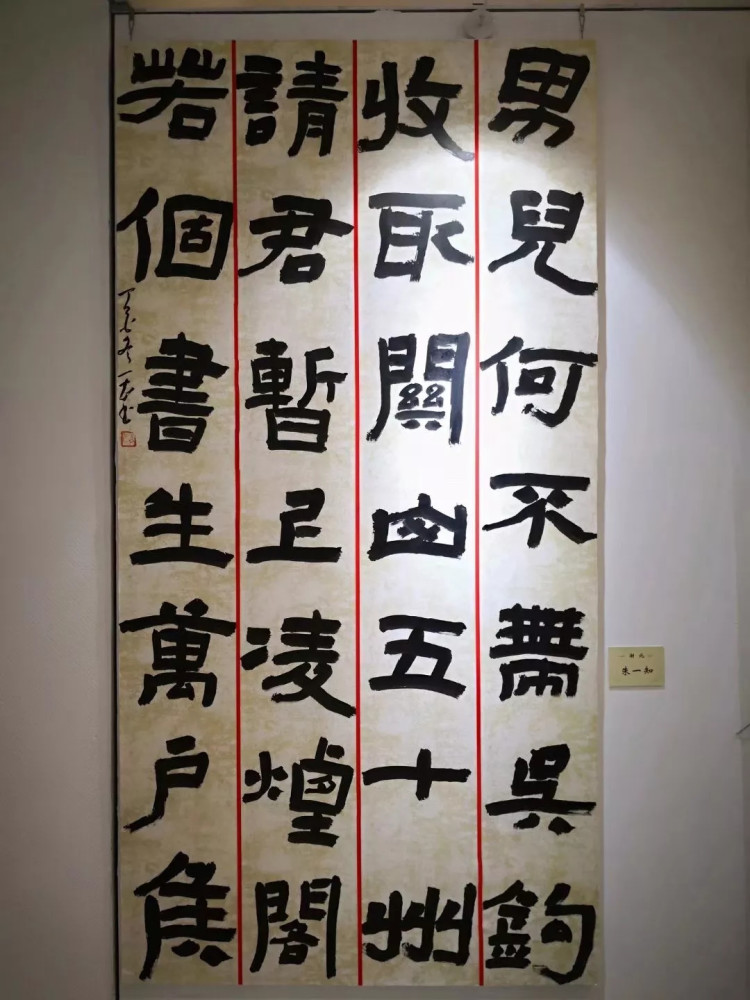 男兒何不帶吳鉤
收取關山五十州
請君暫上凌煙閣
若個書生萬戶侯
丁酉冬一知書
朱一知